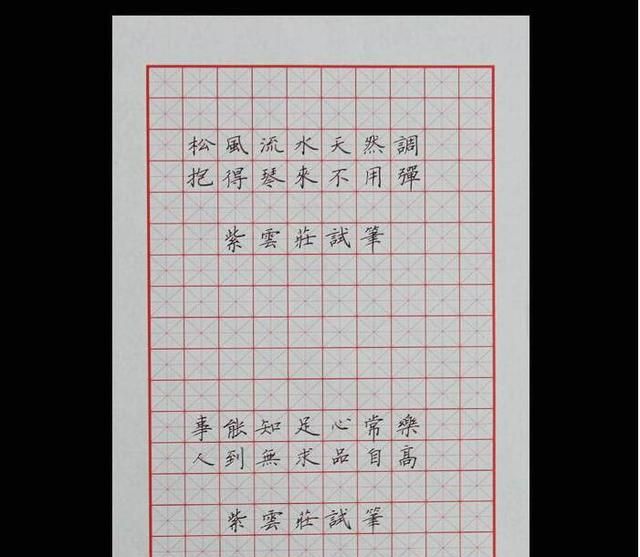 松風流水天然調
抱得琴來不用彈
紫雲莊試筆
事能知足心常樂
人到無求品自高
紫雲莊試筆